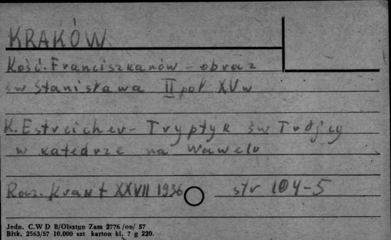 KRAKÓW
Kość. Franciszkanów - obraz
św Stanisława II poł XV w
K. Estreicher - Tryptyk św Trójcy
w katedrze na Wawelu
Rocz. Krak t XXVII 1936 str 104-5
Jedn. C.W D B/Olsztyn Zam 2776 /oo/ 57
Bltk. 2563/57 10.000 szt karton kl. 7 g 220.